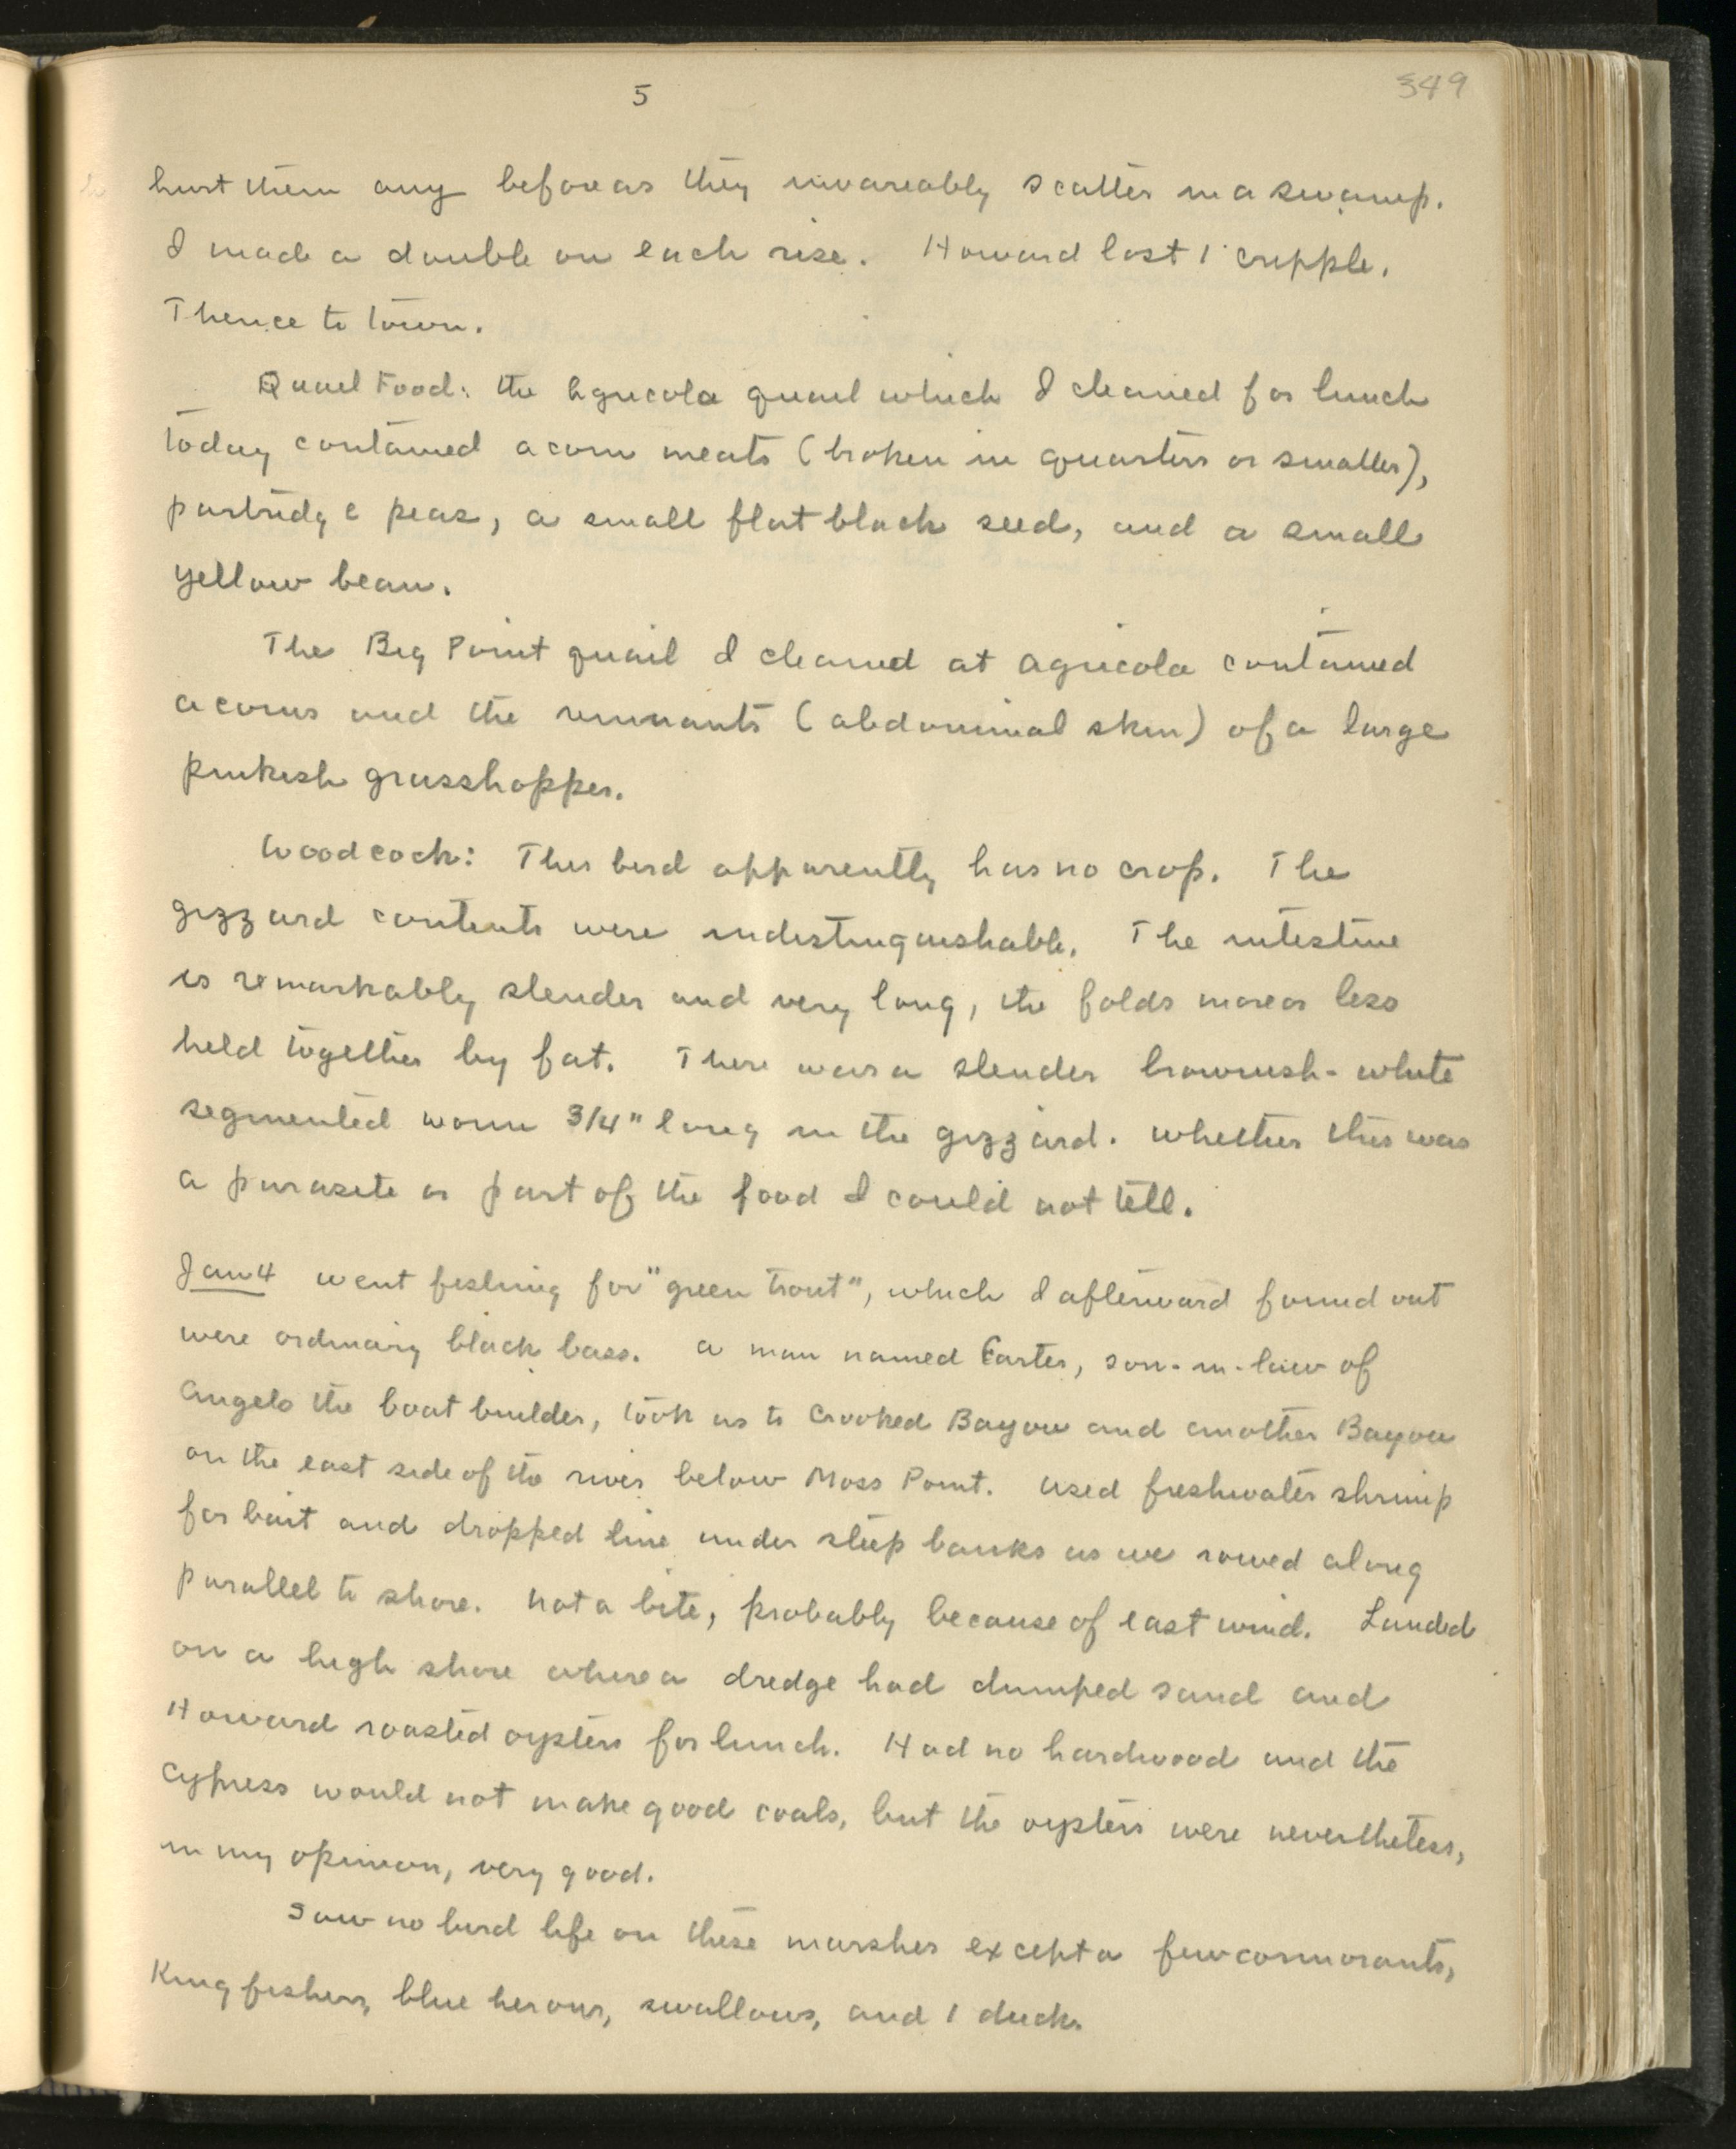 5
349
hurt them any before as they invareably scatter in a swamp.
I made a double on each rise. Howard lost 1 cripple.
Thence to town.
Quail Food: the Agricola quail which I cleaned for lunch
today contained acorn meats (broken in quarters or smaller),
partridge peas, a small flat black seed, and a small
yellow bean.
The Big Point quail I cleaned at Agricola contained
acorns and the remnants (abdominal skin) of a large
pinkish grasshopper.
Woodcock: This bird apparently has no crop. The
gizzard contents were indistinguishable. The intestine
is remarkably slender and very long, the folds more or less
held together by fat. There was a slender brownish-white
segmented worm 3/4" long in the gizzard. Whether this was
a parasite or part of the food I could not tell.
Jan 4 Went fishing for "green trout", which I afterward found out
were ordinary black bass. A man named Carter, son-in-law of
Angelo the boat builder, took us to Crooked Bayou and another Bayou
on the east side of the river below Moss Point. Used freshwater shrimp
for bait and dropped line under steep banks as we rowed along
parallel to shore. Not a bite, probably because of east wind. Landed
on a high shore where a dredge had dumped sand and
Howard roasted oysters for lunch. Had no hardwood and the
cypress would not make good coals, but the oysters were nevertheless,
in my opinion, very good.
Saw no bird life on these marshes except a few cormorants,
Kingfishers, blue herons, swallows, and 1 duck